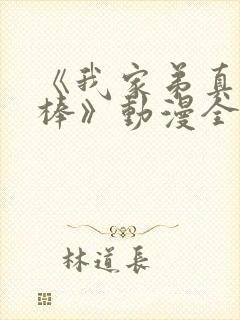 《我家弟真
棒》動漫全
林道長